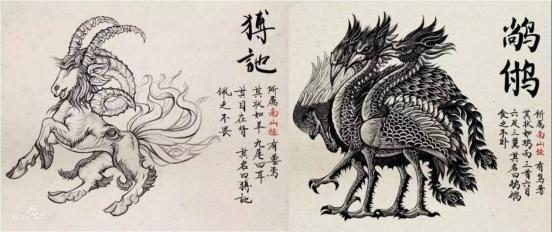 猼訑
所属南山经 有兽焉
其状如羊 九尾四耳
其目在背 其名曰猼訑
佩之不畏
所属南山经 有鸟焉
其状如鸡而三首六目
六足三翼 其名曰
食之不卧
Bai百科